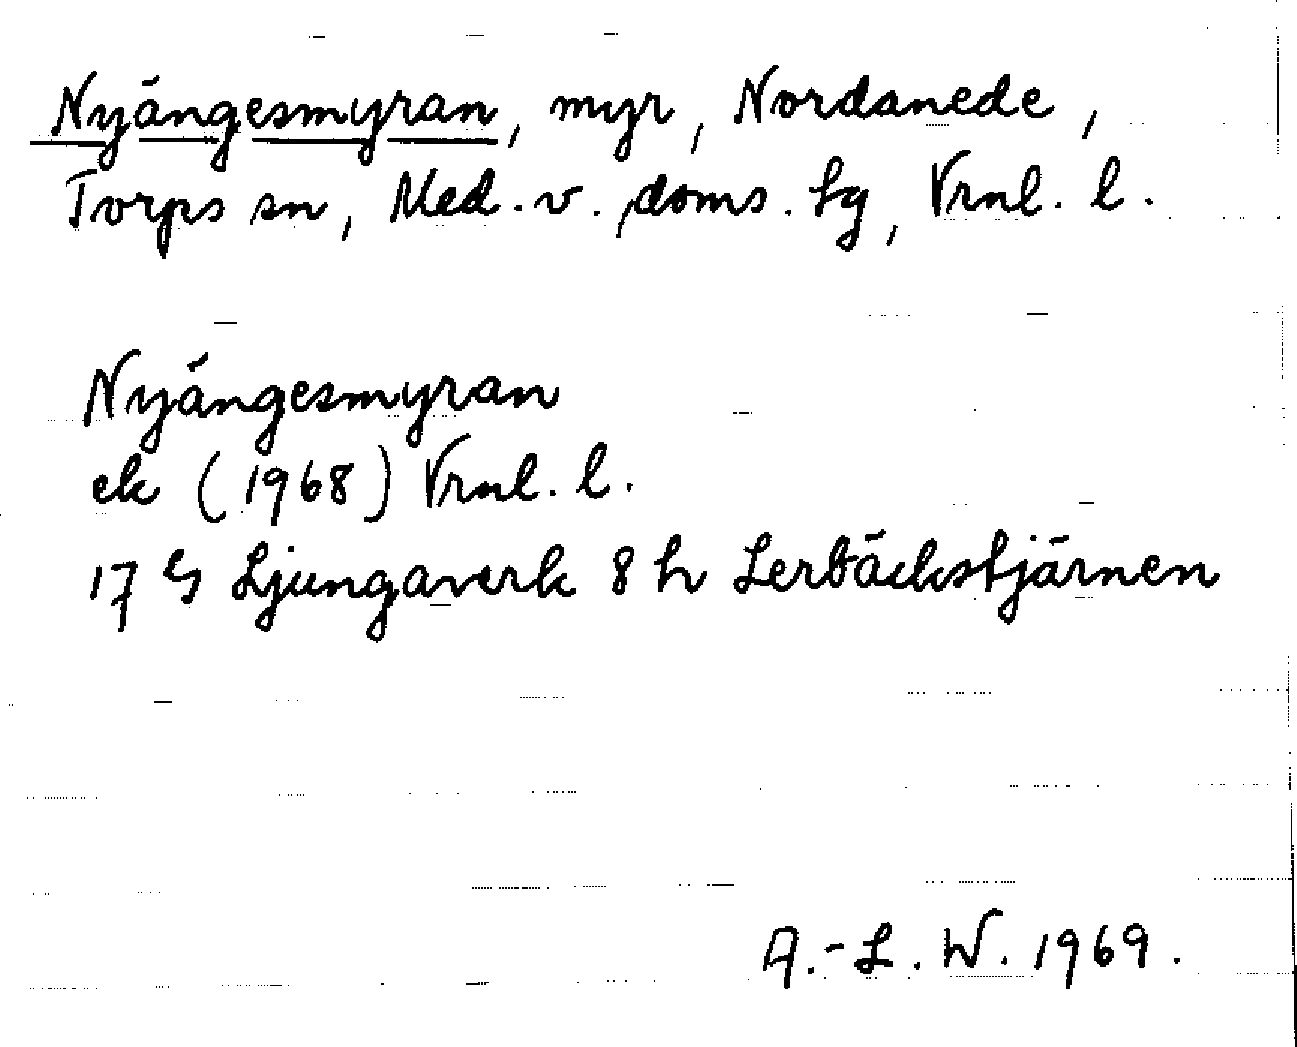 Nyängesmyran, myr, Nordanede,
Torps sn, Med. v. doms. tg, Vrnl. l.
Nyängesmyran
ek (1968) Vrnl. l.
17 G Ljungaverk 8 h Lerbäckstjärnen
A.-L. W. 1969.